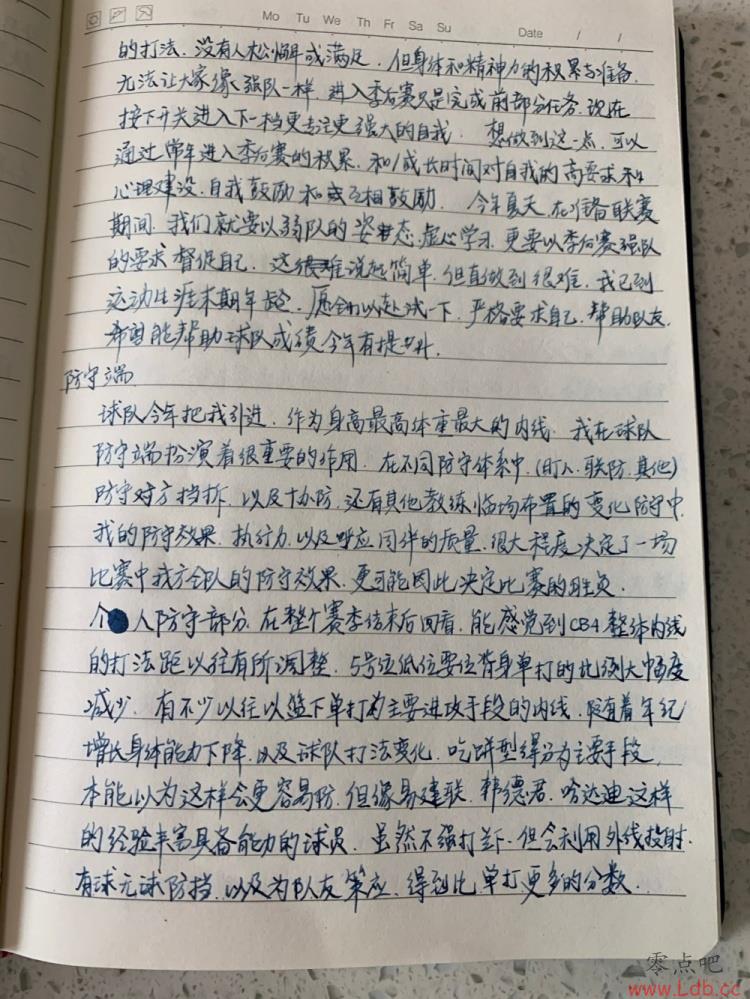 Mo Tu We Th Fr Sa Su Date / /
的打法．没有人松懈或满足．但身体和精神力的积累与准备．
无法让大家像强队一样．进入季后赛只是完成前部分任务．现在
按下开关进入下一档更专注更强大的自我．想做到这一点．可以
通过常年进入季后赛的积累．和成长时间对自我的高要求和
心理建设．自我鼓励和或互相鼓励．今年夏天．在准备联赛
期间．我们就要以弱队的姿态．虚心学习．更要以季后赛强队
的要求督促自己．这很难说起简单．但真做到很难．我已到
运动生涯末期年龄．愿全力以赴试一下．严格要求自己．帮助队友．
希望能帮助球队成绩今年有提升．
防守端
球队今年把我引进．作为身高最高体重最大的内线．我在球队
防守端扮演着很重要的作用．在不同防守体系中．(盯人．联防．其他)
防守对方挡拆．以及协防．还有其他教练临场布置的变化防守中．
我的防守效果．执行力．以及呼应同伴的质量．很大程度决定了一场
比赛中我方全队的防守效果．更可能因此决定比赛的胜负．
个人防守部分．在整个赛季结束后回看．能感觉到CBA整体内线
的打法距以往有所调整．5号位低位要位背身单打的比例大幅度
减少．有不少以往以篮下单打为主要进攻手段的内线．随着年纪
增长身体能力下降．以及球队打法变化．吃饼型得分为主要手段．
本能以为这样会更容易防．但像易建联．韩德君．哈达迪这样
的经验丰富具备能力的球员．虽然不强打篮下．但会利用外线投射．
有球无球防挡．以及为队友策应．得到比单打更多的分数．
零点吧
www.Ldb.cc